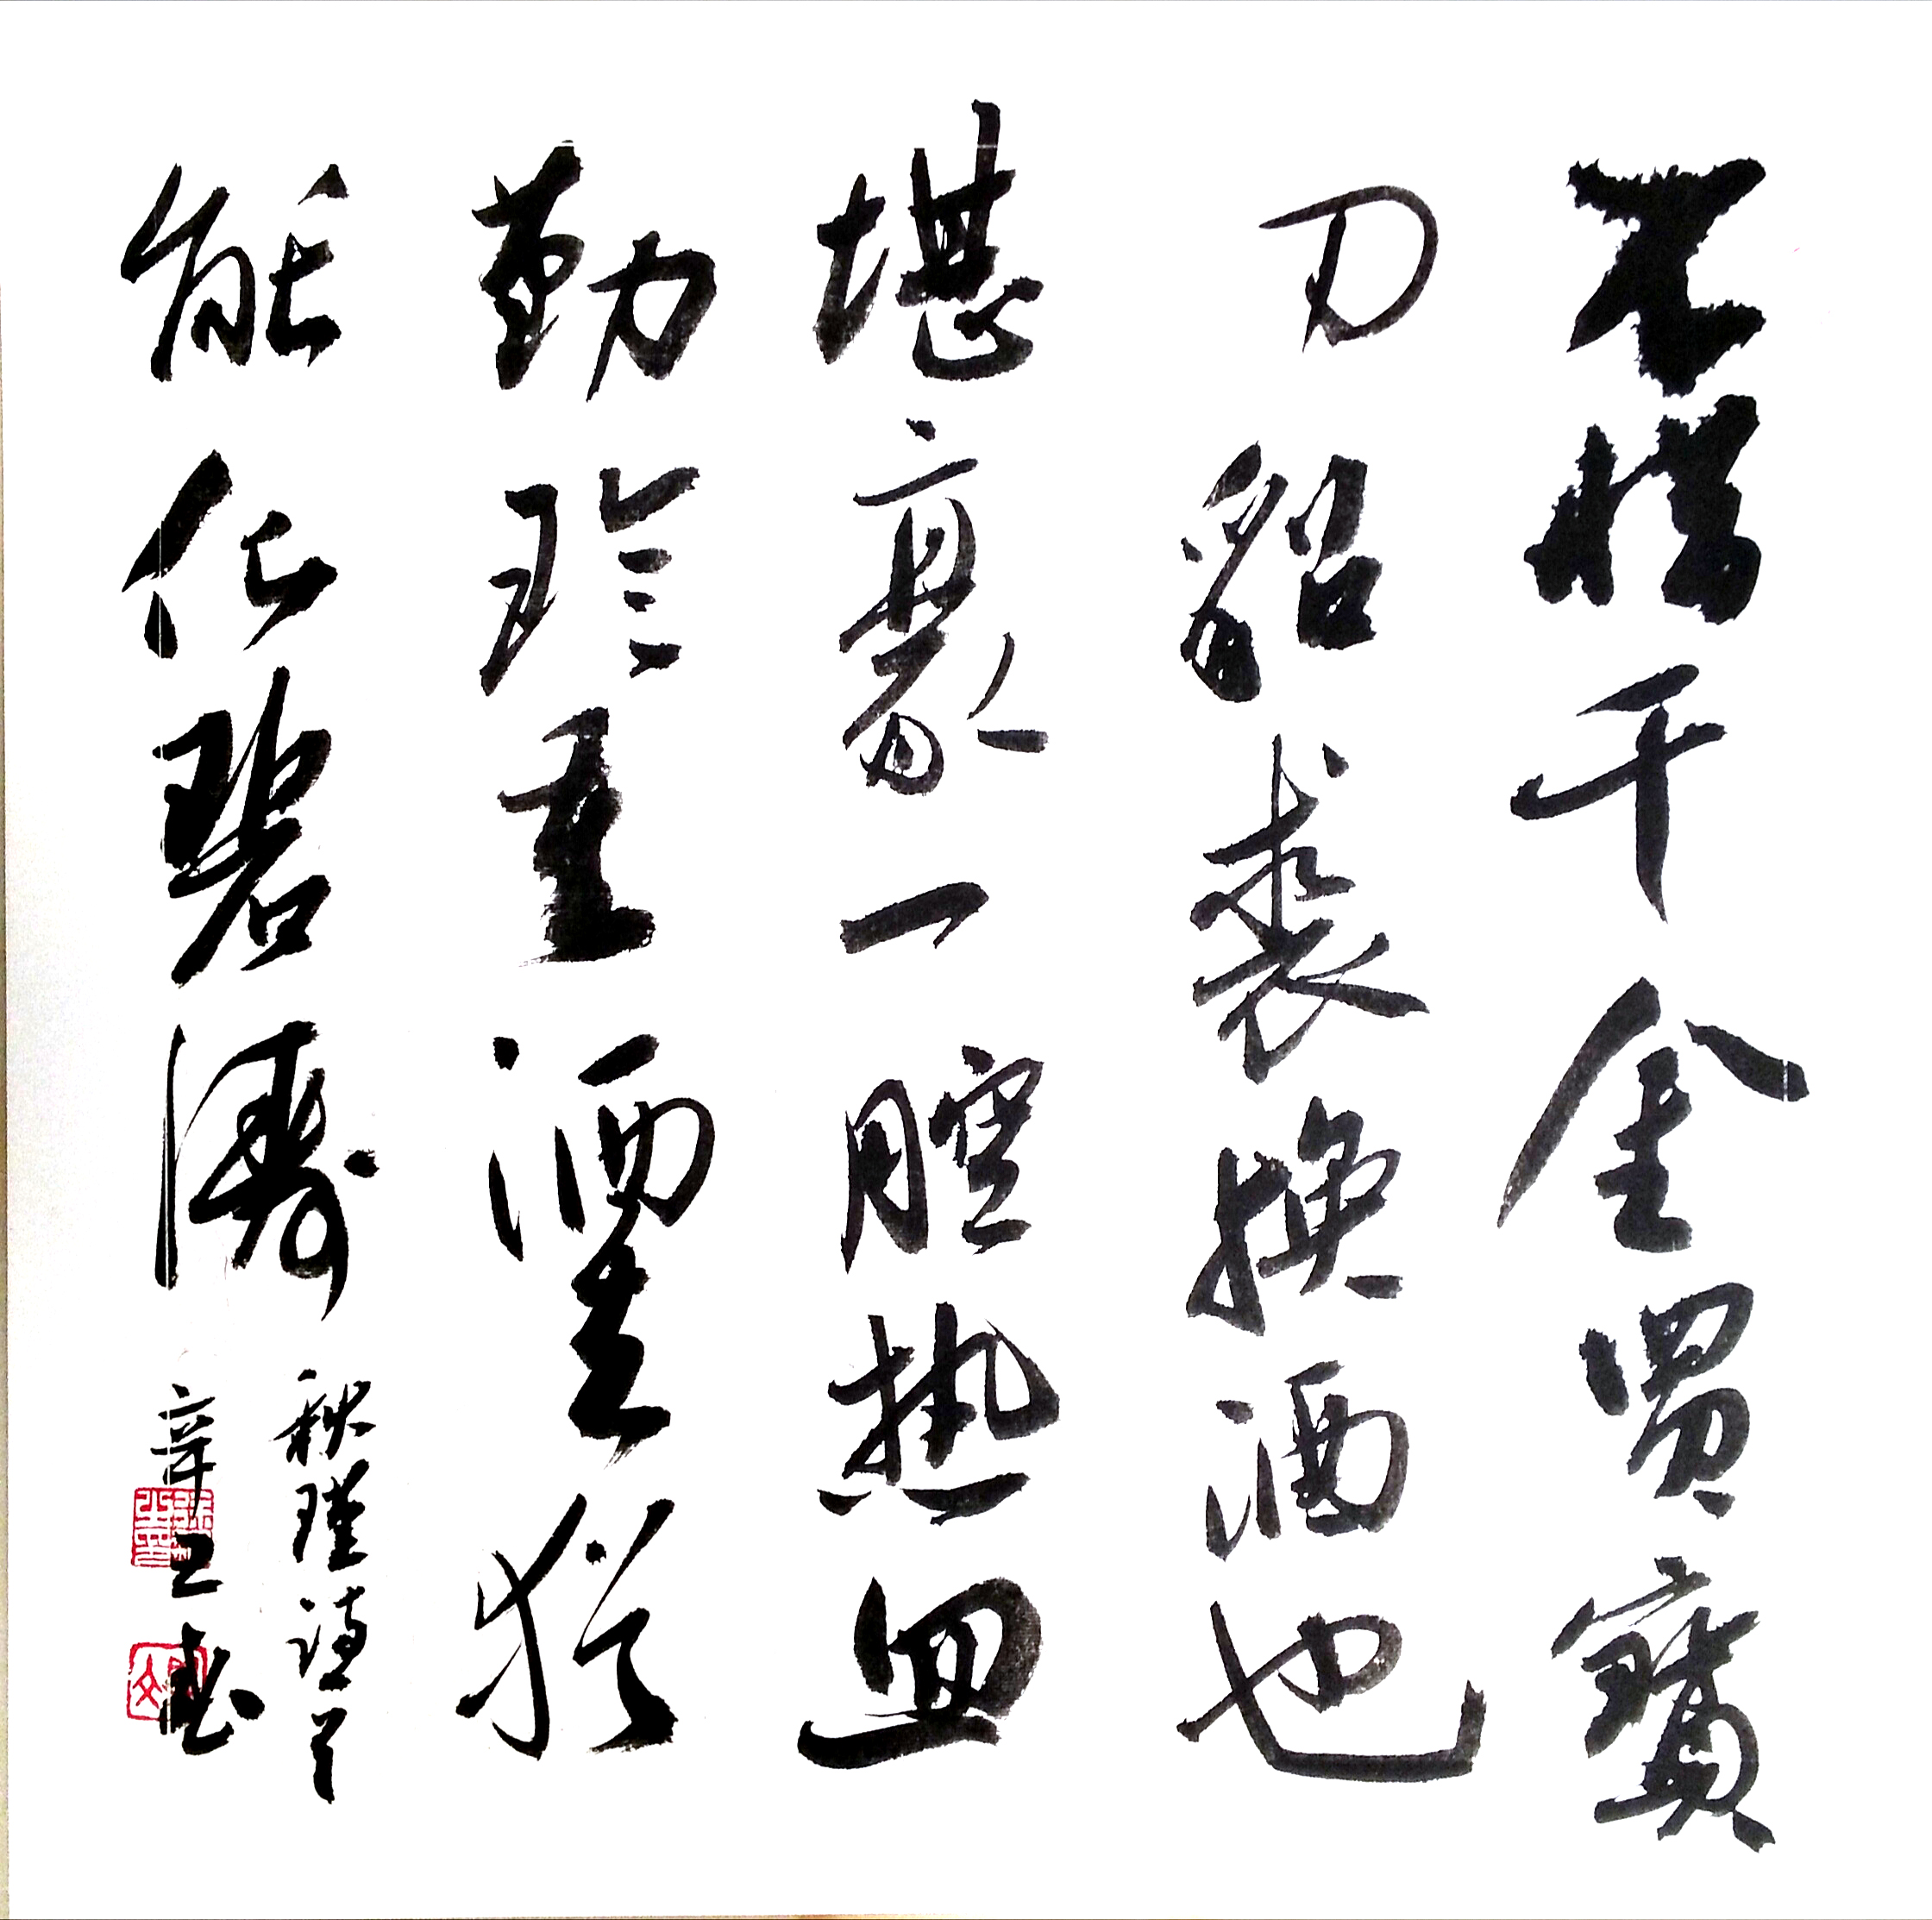 不惜千金買寶
刀貂裘換酒也
堪豪一腔热血
勤珍重洒去猶
能化碧濤
秋瑾詩
辛丑